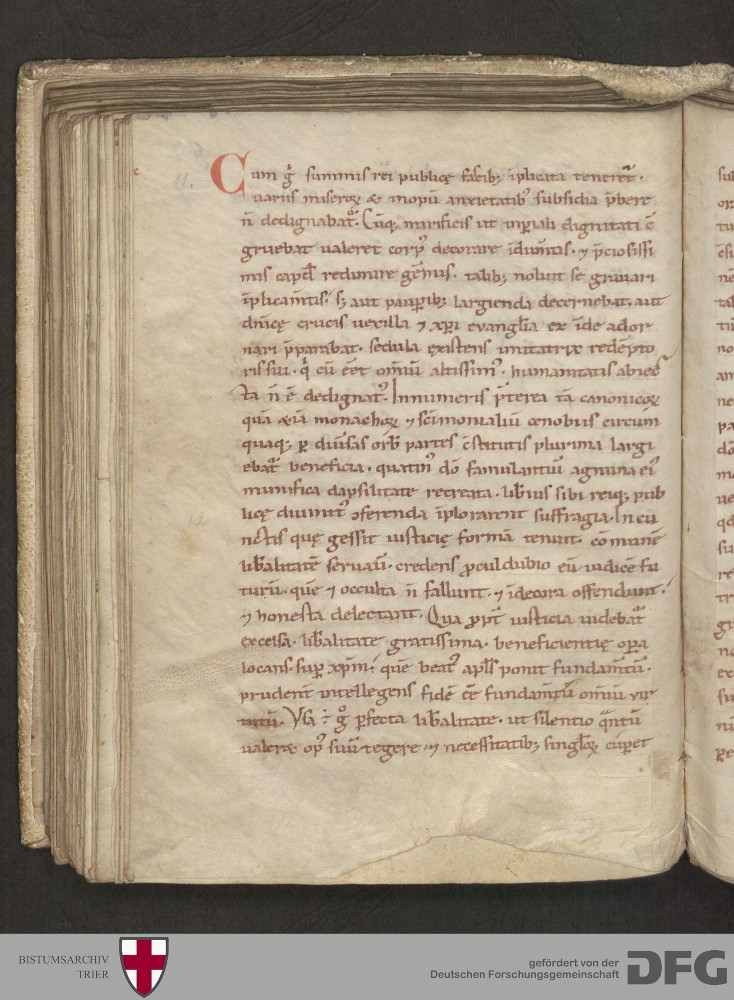 11.
Cum gͥ summis rei publicę fascib; ı̄plicita teneret᷑.
uariis miseroꝝ & inopū anxietatib᷒ subsidia p̄bere
n̄ dedignabat᷑. Cūq; mirificis ut imꝑiali dignitati c̄
gruebat ualeret corp᷒ decorare ı̄dum̄tis. ⁊ p̄ciosissi
mis capd̄ redimire gēmis. talib; noluit se grauari
ı̄plicam̄tis. s; aut pauꝑib; largienda decernebat. aut
dn̄icę crucis uexilla ⁊ xp̄i evangl̄ia ex ı̄de ador
nari p̄parabat. sedula existens imitatrix redēpto
ris sui. qͥ cū eēt om̄iū altissim᷒. humanitatis abiec
ta n̄ ē dedignat᷒. Innumeris p̄terea tā canonicoꝝ
quā &iā monachoꝝ ⁊ sc̄imonialiū cœnobiis circum
quaq; ꝑ diuͥsas orb̄ partes c̄stitutis plurima largi
ebat᷑ beneficia. quatin᷒ dō famulantiū agmina ei᷒
munifica dapsilitate recreata. lib̄ius sibi reiq; pub
licę diuinit᷒ ꝯferenda ı̄plorarent suffragia. In cu
nctis quę gessit iusticię formā tenuit. cōmunē
lib̄alitatē seruauͥ. credens ꝓculdubio eū iudicē fu
turū. quē ⁊ occulta n̄ fallunt. ⁊ ı̄decora offendunt.
⁊ honesta delectant. Qua ꝓpt᷑ iusticia uidebat᷑
excelsa. lib̄alitate gratissima. beneficientię oꝑa
locans. suꝑ xp̄m. quē beat᷒ apl̄s ponit fundam̄tū.
prudent᷑ intellegens fidē eē fundam̄tū om̄iū uir
tutū. Vsa ÷ gͦ ꝑfecta lib̄alitate. ut silentio qͣntū
ualeret op᷒ suū tegere. ⁊ necessitatib; singl̄oꝝ cuꝑet
BISTUMSARCHIV
TRIER
gefördert von der
Deutschen Forschungsgemeinschaft
DFG